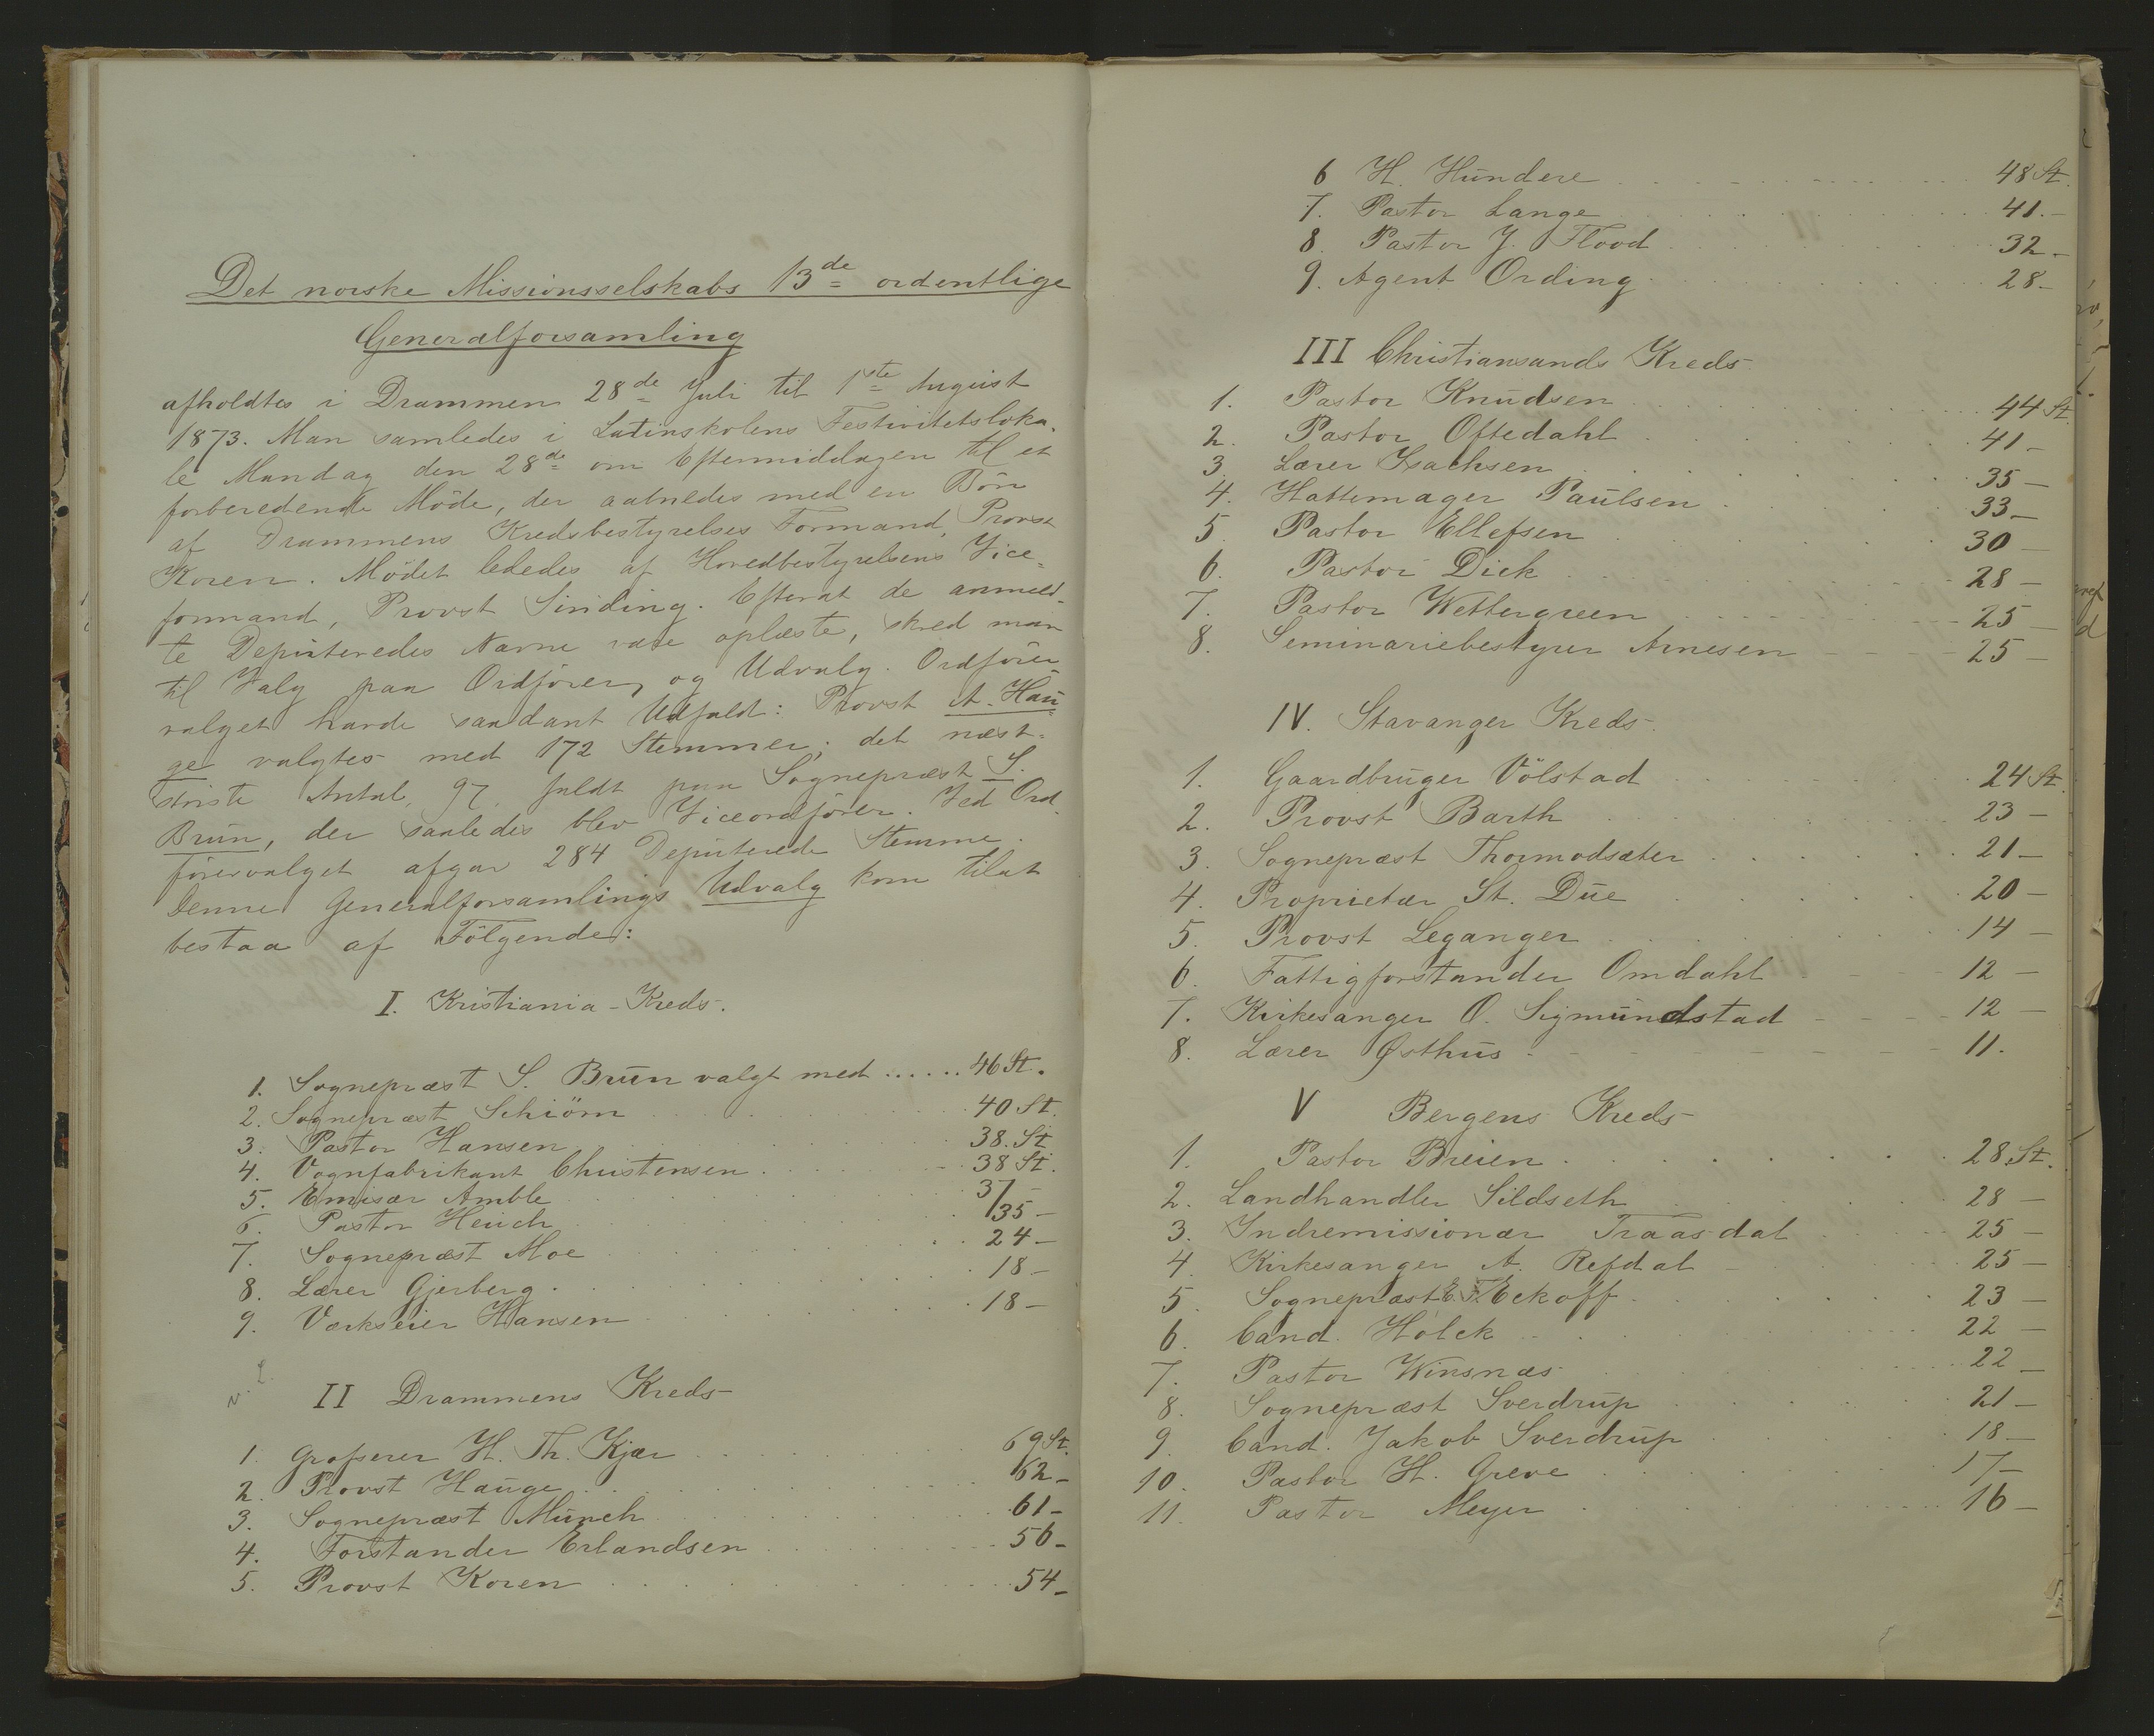 Det norske Missionsselskabs 13de ordentlige
Generalforsamling
afholdtes i Drammen 28de Juli til 1ste August
1873. Man samledes i Latinskolens Festivitetsloka-
le Mandag den 28de om Eftermiddagen til et
forberedende Møde, der aabnedes med en Bön
af Drammens Kredsbestyrelses Formand, Provst
Koren. Mödet lededes af Hovedbestyrelsens Vice-
formand, Provst Sinding. Efterat de anmeld-
te Deputeredes Navne vare oplæste, skred man
til Valg paa Ordförer, og Udvalg. Ordförer-
valget havde saadant Udfald: Provst A. Hau-
ge valgtes med 172 Stemmer; det næst-
störste Antal, 97, faldt paa Sognepræst S.
Brun, der saaledes blev Viceordförer. Ved Ord-
förervalget afgav 284 Deputerede Stemme.
Denne Generalforsamlings Udvalg kom tilat
bestaa af Fölgende:
I. Kristiania-Kreds.
1. Sognepræst S. Brun valgt med ...... 46 St.
2. Sognepræst Schiörn 40 St.
3. Pastor Hansen 38. St
4. Vognfabrikant Christensen 38 St.
5. Emisær Amble 37 -
6. Pastor Heuch 35 -
7. Sognepræst Moe 24 -
8. Lærer Gjerberg 18 -
9. Værkseier Hansen 18 -
II Drammens Kreds
1. Grosserer H. Th. Kjær 69 St.
2. Provst Hauge 62 -
3. Sognepræst Münch 61 -
4. Forstander Erlandsen 56 -
5. Provst Koren 54 -
6 H. Hundere 48 St.
7. Pastor Lange 41. -
8. Pastor J. Flood 32 -
9. Agent Ording 28 -
III Christiansands Kreds
1. Pastor Knudsen 44 St.
2. Pastor Oftedahl 41 -
3. Lærer Isachsen 35 -
4. Hattemager Paulsen 33 -
5. Pastor Ellefsen 30 -
6. Pastor Dick 28 -
7. Pastor Wettergreen 25 -
8. Seminariebestyrer Arnesen 25 -
IV. Stavanger Kreds
1. Gaardbruger Völstad 24 St.
2. Provst Barth 23 -
3. Sognepræst Thormodsæter 21 -
4. Proprietær St. Due 20 -
5. Provst Leganger 14 -
6. Fattigforstander Omdahl 12 -
7. Kirkesanger O. Sigmundstad 12 -
8. Lærer Østhus 11.
V Bergens Kreds
1. Pastor Breien 28 St.
2. Landhandler Sildseth 28 -
3. Indremissionær Traasdal 25 -
4. Kirkesanger A. Refdal 25 -
5. Sognepræst E. F. Eckoff 23 -
6. Cand. Holck 22 -
7. Pastor Winsnæs 22 -
8. Sognepræst Sverdrup 21 -
9. Cand. Jakob Sverdrup 18 -
10. Pastor H. Greve 17 -
11. Pastor Meyer 16 -